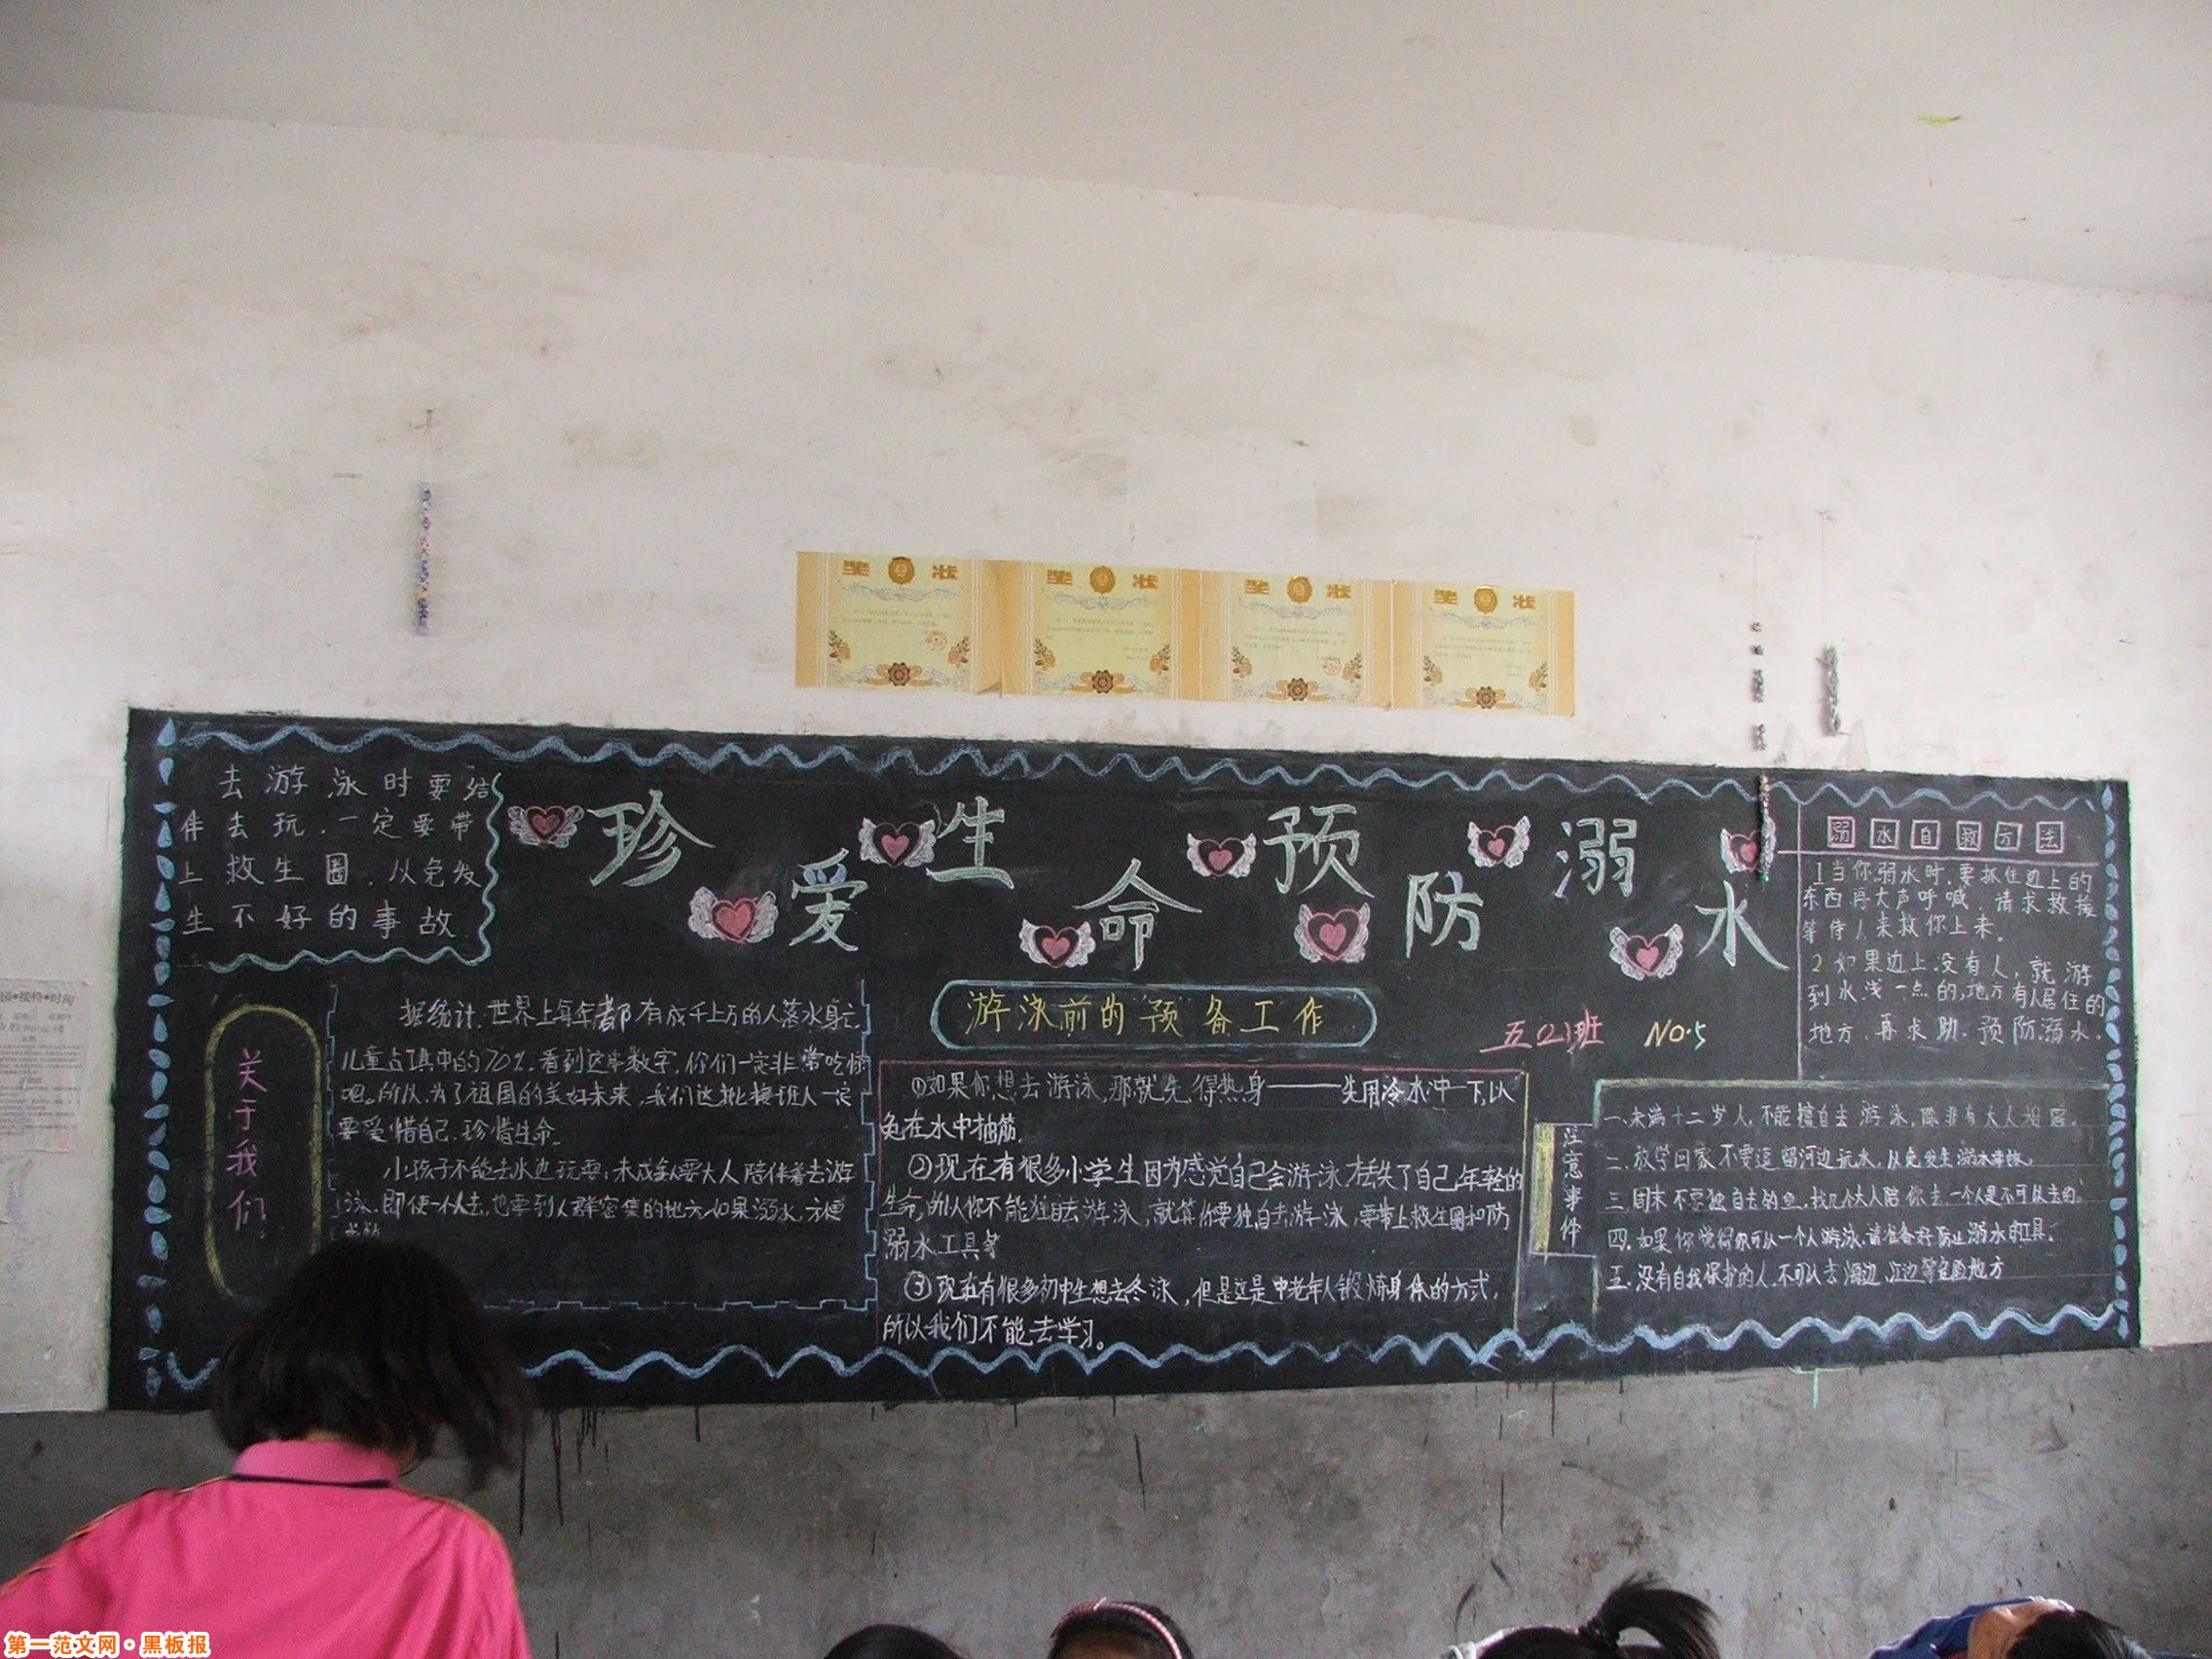 奖状
奖状
奖状
奖状
去游泳时要结
伴去玩.一定要带
上救生圈.以免发
生不好的事故.
珍爱生命预防溺水
关于我们
据统计.世界上每年都有成千上万的人落水身亡.
儿童占其中的70%.看到这些数字,你们一定非常吃惊
吧。所以.为了祖国的美好未来,我们这批接班人一定
要爱惜自己.珍惜生命.
小孩子不能去水边玩耍;未成年人要大人陪伴着去游
泳.即使一个人去,也要到人群密集的地方.如果溺水,方便
游泳前的预备工作
五(2)班 NO.5
①如果你想去游泳,那就先得热身——先用冷水冲一下,以
免在水中抽筋.
②现在有很多小学生因为感觉自己会游泳才丢失了自己年轻的
生命,所以你不能独自去游泳,就算你要独自去游泳,要带上救生圈和防
溺水工具等
③现在有很多初中生想去冬泳,但是这是中老年人锻炼身体的方式,
所以我们不能去学习。
溺水自救方法
1当你溺水时,要抓住边上的
东西再大声呼喊.请求救援
等待人来救你上来.
2如果边上没有人,就游
到水浅一点的,地方有人居住的
地方.再求助.预防溺水.
注意事件
一.未满十二岁人,不能擅自去游泳,除非有大人相陪。
二.放学回家不要逗留河边玩水,以免发生溺水事故.
三.周末不要独自去钓鱼,找几个大人陪你去,一个人是不可以去的.
四.如果你觉得你可以一个人游泳.请准备好防止溺水的工具.
五.没有自我保护的人.不可以去海边,江边等危险地方
第一范文网·黑板报